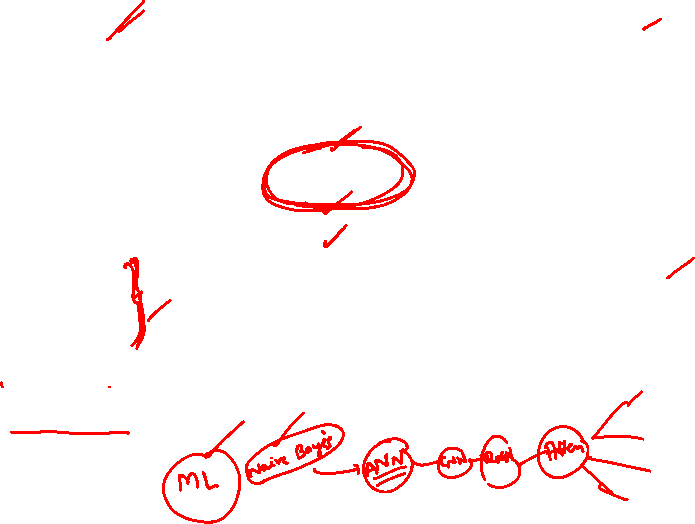 ML Naive Bayes ANN CNN RNN Atten